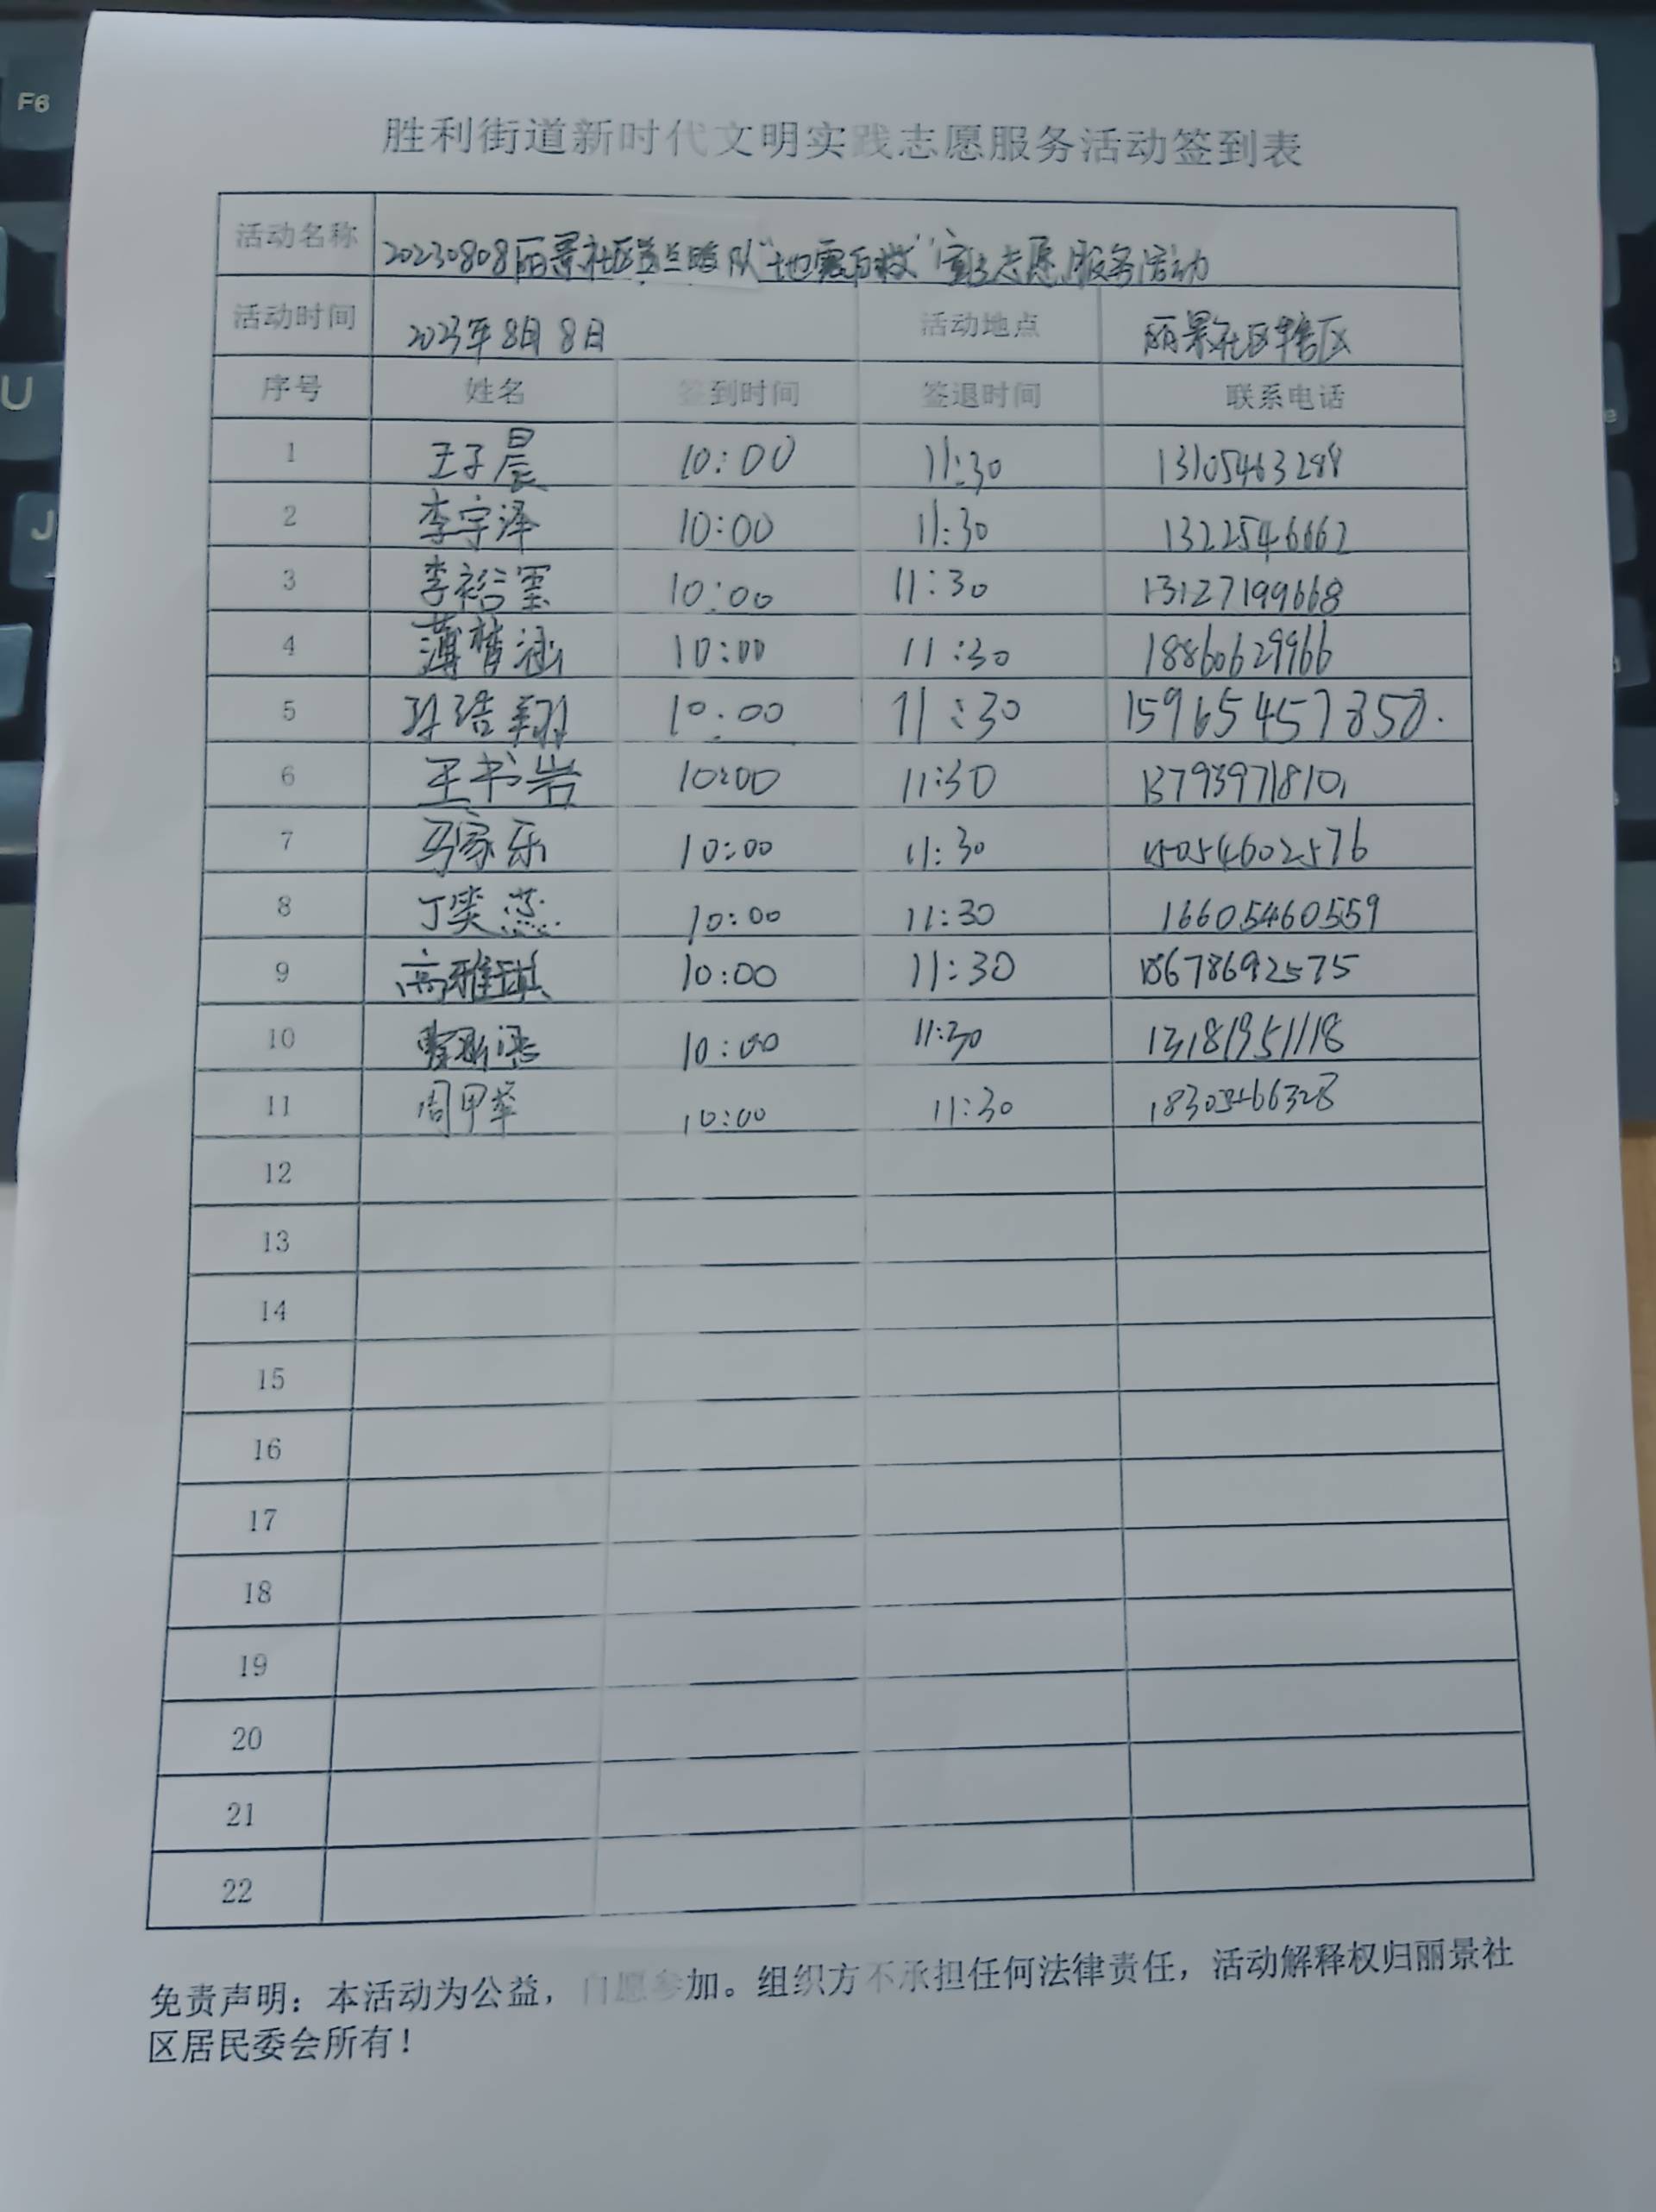 F6
U
J
胜利街道新时代文明实践志愿服务活动签到表
活动名称 20230808丽景社区 队“地震自救”宣传志愿服务活动
活动时间 2023年8月8日 活动地点 丽景社区辖区
序号 姓名 签到时间 签退时间 联系电话
1 王子晨 10:00 11:30 13105463288
2 李宇泽 10:00 11:30 1322546662
3 李裕霖 10:00 11:30 13127199668
4 薄梦涵 10:00 11:30 18860629966
5 孙浩翔 10:00 11:30 159654457858.
6 王书岩 10:00 11:30 13793971810
7 马家乐 10:00 11:30 15054602576
8 丁奕燕 10:00 11:30 16605460559
9 高雅琪 10:00 11:30 18678692575
10 10:00 11:30 13181951118
11 周甲苹 10:00 11:30 18305466328
12
13
14
15
16
17
18
19
20
21
22
免责声明：本活动为公益，自愿参加。组织方不承担任何法律责任，活动解释权归丽景社
区居民委会所有！